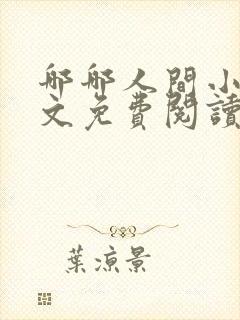 郍郍人間小
文免費閱讀
葉涼景